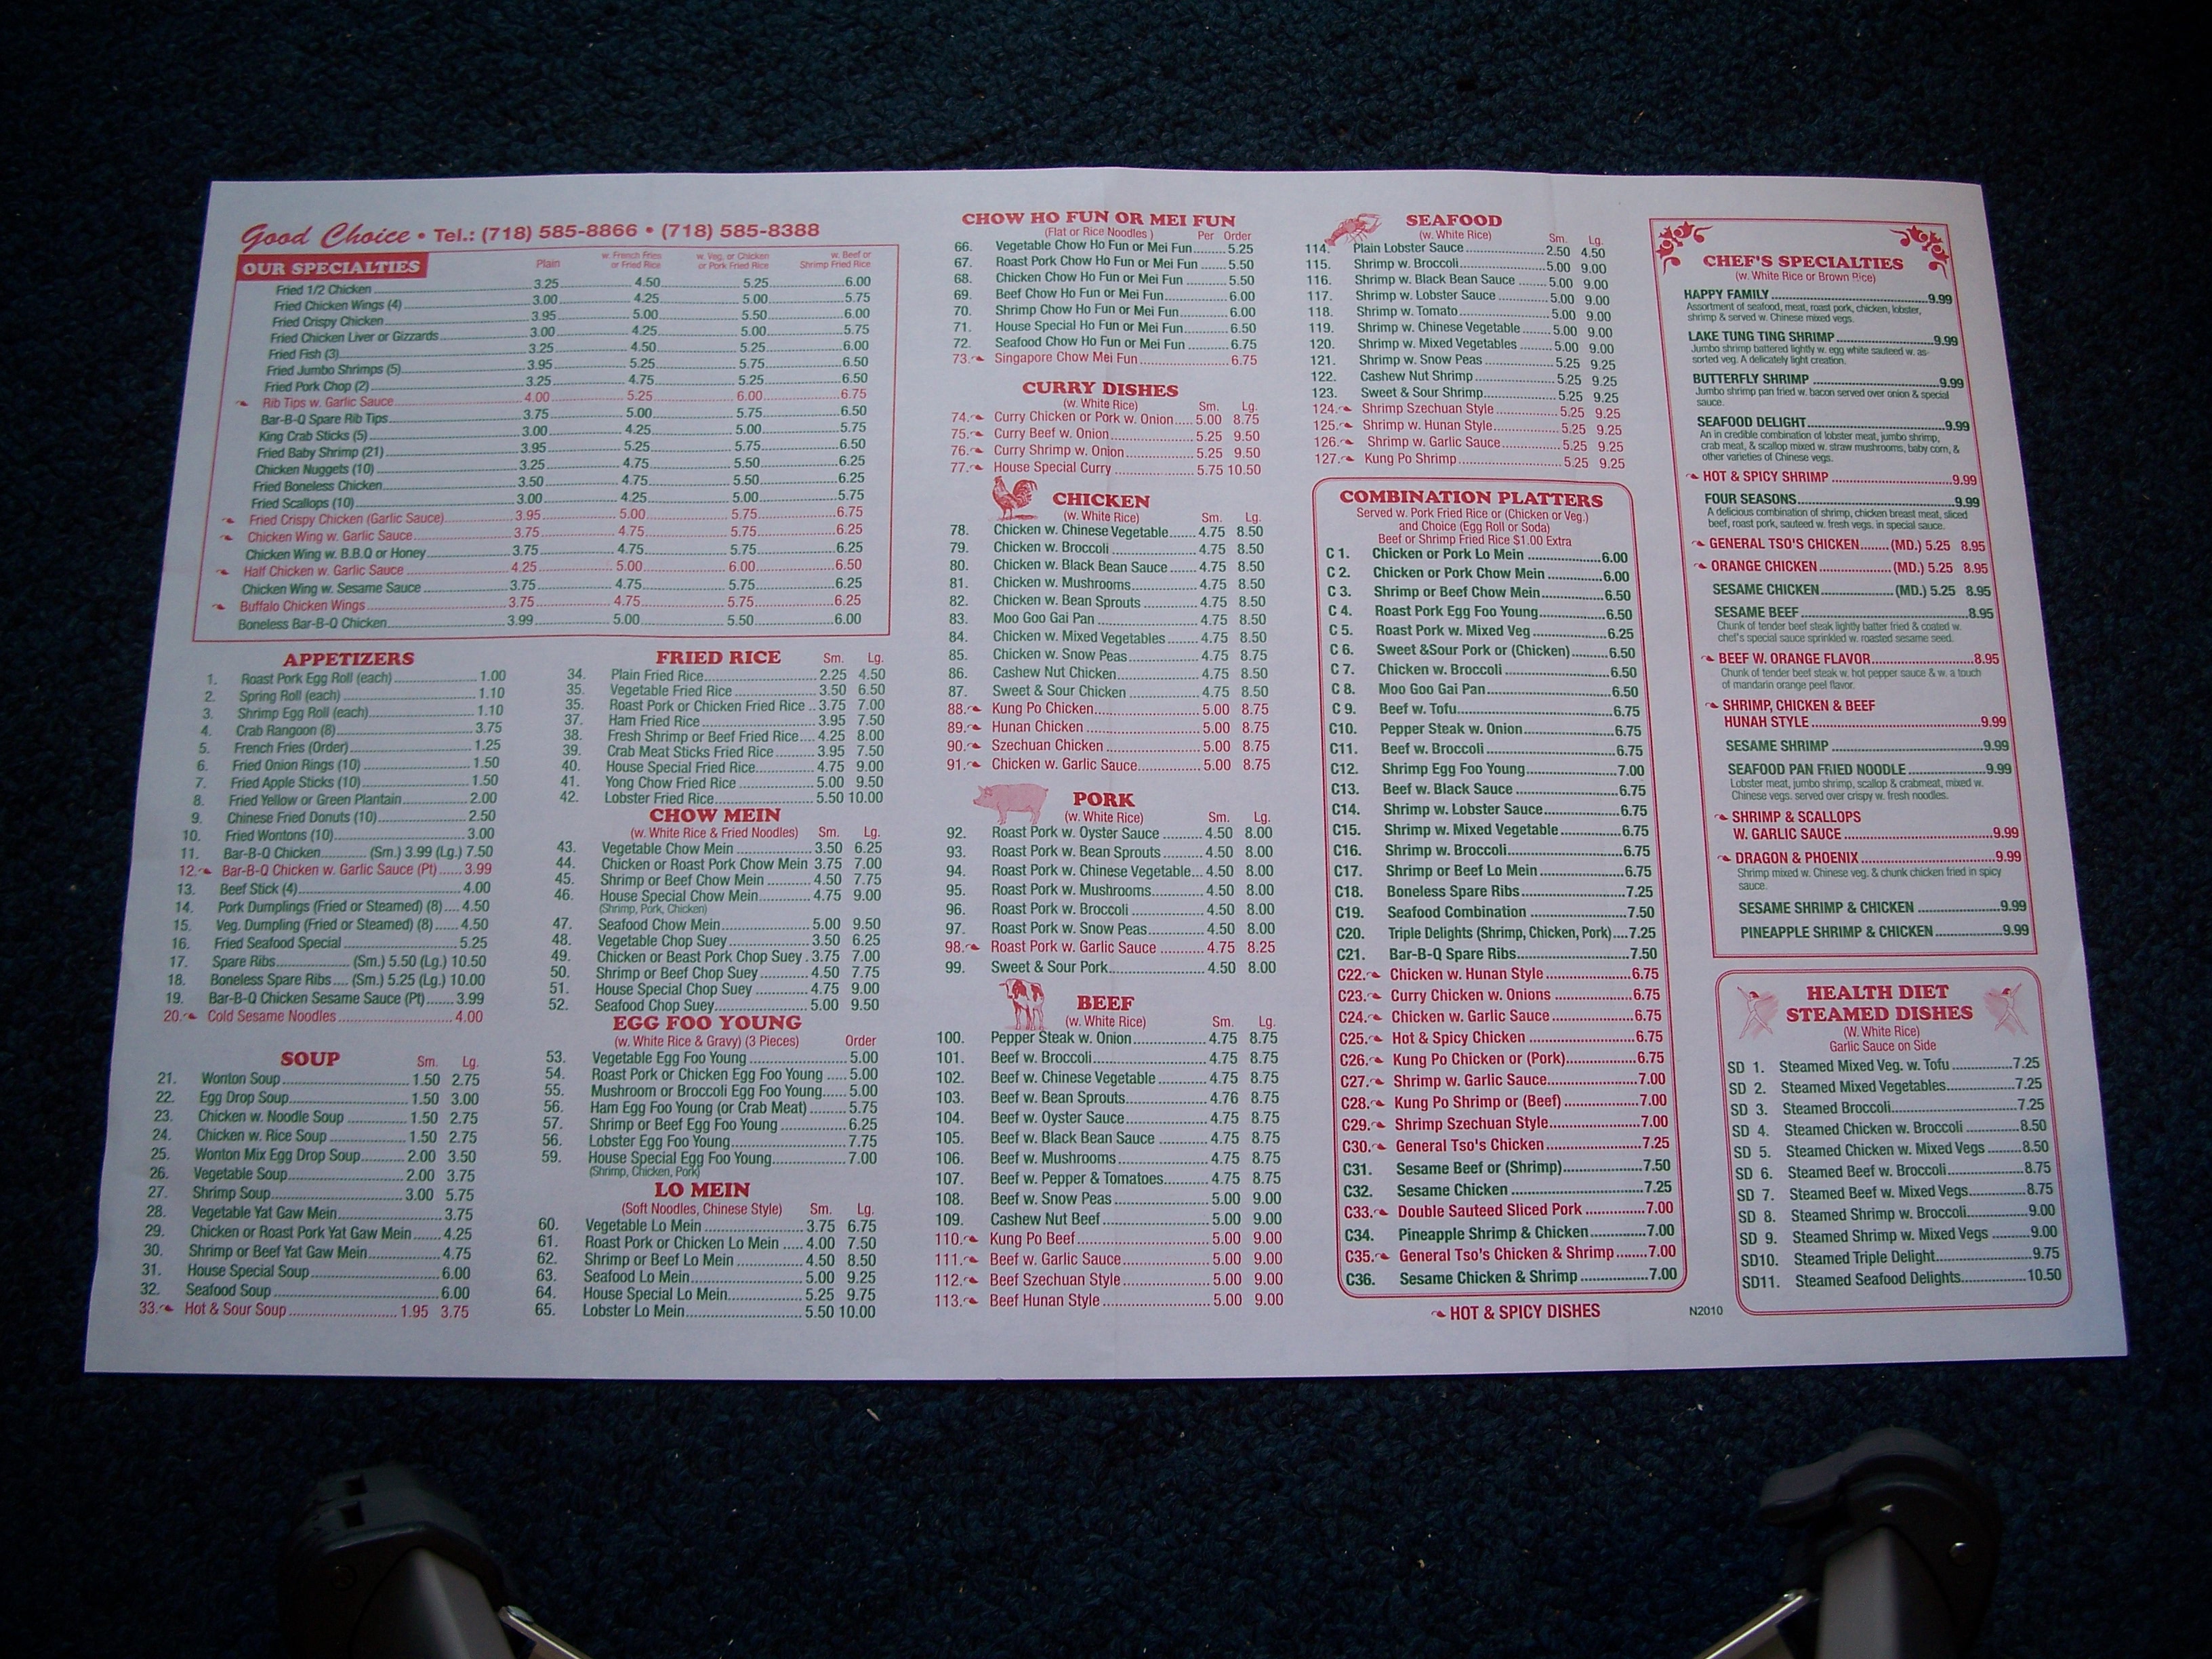 Good Choice • Tel.: (718) 585-8866 • (718) 585-8388
OUR SPECIALTIES
Plain
w. French Fries
or Fried Rice
w. Veg. or Chicken
or Pork Fried Rice
w. Beef or
Shrimp Fried Rice
Fried 1/2 Chicken 3.25 4.50 5.25 6.00
Fried Chicken Wings (4) 3.00 4.25 5.00 5.75
Fried Crispy Chicken 3.95 5.00 5.50 6.00
Fried Chicken Liver or Gizzards 3.00 4.25 5.00 5.75
Fried Fish (3) 3.25 4.50 5.25 6.00
Fried Jumbo Shrimps (5) 3.95 5.25 5.75 6.50
Fried Pork Chop (2) 3.25 4.75 5.25 6.50
Rib Tips w. Garlic Sauce 4.00 5.25 6.00 6.75
Bar-B-Q Spare Rib Tips 3.75 5.00 5.75 6.50
King Crab Sticks (5) 3.00 4.25 5.00 5.75
Fried Baby Shrimp (21) 3.95 5.25 5.75 6.50
Chicken Nuggets (10) 3.25 4.75 5.50 6.25
Fried Boneless Chicken 3.50 4.75 5.50 6.25
Fried Scallops (10) 3.00 4.25 5.00 5.75
Fried Crispy Chicken (Garlic Sauce) 3.95 5.00 5.75 6.75
Chicken Wing w. Garlic Sauce 3.75 4.75 5.75 6.25
Chicken Wing w. B.B.Q or Honey 3.75 4.75 5.75 6.25
Half Chicken w. Garlic Sauce 4.25 5.00 6.00 6.50
Chicken Wing w. Sesame Sauce 3.75 4.75 5.75 6.25
Buffalo Chicken Wings 3.75 4.75 5.75 6.25
Boneless Bar-B-Q Chicken 3.99 5.00 5.50 6.00
APPETIZERS
1. Roast Pork Egg Roll (each) 1.00
2. Spring Roll (each) 1.10
3. Shrimp Egg Roll (each) 1.10
4. Crab Rangoon (8) 3.75
5. French Fries (Order) 1.25
6. Fried Onion Rings (10) 1.50
7. Fried Apple Sticks (10) 1.50
8. Fried Yellow or Green Plantain 2.00
9. Chinese Fried Donuts (10) 2.50
10. Fried Wontons (10) 3.00
11. Bar-B-Q Chicken (Sm.) 3.99 (Lg.) 7.50
12. Bar-B-Q Chicken w. Garlic Sauce (Pt) 3.99
13. Beef Stick (4) 4.00
14. Pork Dumplings (Fried or Steamed) (8) 4.50
15. Veg. Dumpling (Fried or Steamed) (8) 4.50
16. Fried Seafood Special 5.25
17. Spare Ribs (Sm.) 5.50 (Lg.) 10.50
18. Boneless Spare Ribs (Sm.) 5.25 (Lg.) 10.00
19. Bar-B-Q Chicken Sesame Sauce (Pt) 3.99
20. Cold Sesame Noodles 4.00
SOUP Sm. Lg.
21. Wonton Soup 1.50 2.75
22. Egg Drop Soup 1.50 3.00
23. Chicken w. Noodle Soup 1.50 2.75
24. Chicken w. Rice Soup 1.50 2.75
25. Wonton Mix Egg Drop Soup 2.00 3.50
26. Vegetable Soup 2.00 3.75
27. Shrimp Soup 3.00 5.75
28. Vegetable Yat Gaw Mein 3.75
29. Chicken or Roast Pork Yat Gaw Mein 4.25
30. Shrimp or Beef Yat Gaw Mein 4.75
31. House Special Soup 6.00
32. Seafood Soup 6.00
33. Hot & Sour Soup 1.95 3.75
FRIED RICE Sm. Lg.
34. Plain Fried Rice 2.25 4.50
35. Vegetable Fried Rice 3.50 6.50
35. Roast Pork or Chicken Fried Rice 3.75 7.00
37. Ham Fried Rice 3.95 7.50
38. Fresh Shrimp or Beef Fried Rice 4.25 8.00
39. Crab Meat Sticks Fried Rice 3.95 7.50
40. House Special Fried Rice 4.75 9.00
41. Yong Chow Fried Rice 5.00 9.50
42. Lobster Fried Rice 5.50 10.00
CHOW MEIN
(w. White Rice & Fried Noodles) Sm. Lg.
43. Vegetable Chow Mein 3.50 6.25
44. Chicken or Roast Pork Chow Mein 3.75 7.00
45. Shrimp or Beef Chow Mein 4.50 7.75
46. House Special Chow Mein 4.75 9.00
(Shrimp, Pork, Chicken)
47. Seafood Chow Mein 5.00 9.50
48. Vegetable Chop Suey 3.50 6.25
49. Chicken or Beast Pork Chop Suey 3.75 7.00
50. Shrimp or Beef Chop Suey 4.50 7.75
51. House Special Chop Suey 4.75 9.00
52. Seafood Chop Suey 5.00 9.50
EGG FOO YOUNG
(w. White Rice & Gravy) (3 Pieces) Order
53. Vegetable Egg Foo Young 5.00
54. Roast Pork or Chicken Egg Foo Young 5.00
55. Mushroom or Broccoli Egg Foo Young 5.00
56. Ham Egg Foo Young (or Crab Meat) 5.75
57. Shrimp or Beef Egg Foo Young 6.25
56. Lobster Egg Foo Young 7.75
59. House Special Egg Foo Young 7.00
(Shrimp, Chicken, Pork)
LO MEIN
(Soft Noodles, Chinese Style) Sm. Lg.
60. Vegetable Lo Mein 3.75 6.75
61. Roast Pork or Chicken Lo Mein 4.00 7.50
62. Shrimp or Beef Lo Mein 4.50 8.50
63. Seafood Lo Mein 5.00 9.25
64. House Special Lo Mein 5.25 9.75
65. Lobster Lo Mein 5.50 10.00
CHOW HO FUN OR MEI FUN
(Flat or Rice Noodles ) Per Order
66. Vegetable Chow Ho Fun or Mei Fun 5.25
67. Roast Pork Chow Ho Fun or Mei Fun 5.50
68. Chicken Chow Ho Fun or Mei Fun 5.50
69. Beef Chow Ho Fun or Mei Fun 6.00
70. Shrimp Chow Ho Fun or Mei Fun 6.00
71. House Special Ho Fun or Mei Fun 6.50
72. Seafood Chow Ho Fun or Mei Fun 6.75
73. Singapore Chow Mei Fun 6.75
CURRY DISHES
(w. White Rice) Sm. Lg.
74. Curry Chicken or Pork w. Onion 5.00 8.75
75. Curry Beef w. Onion 5.25 9.50
76. Curry Shrimp w. Onion 5.25 9.50
77. House Special Curry 5.75 10.50
CHICKEN
(w. White Rice) Sm. Lg.
78. Chicken w. Chinese Vegetable 4.75 8.50
79. Chicken w. Broccoli 4.75 8.50
80. Chicken w. Black Bean Sauce 4.75 8.50
81. Chicken w. Mushrooms 4.75 8.50
82. Chicken w. Bean Sprouts 4.75 8.50
83. Moo Goo Gai Pan 4.75 8.50
84. Chicken w. Mixed Vegetables 4.75 8.50
85. Chicken w. Snow Peas 4.75 8.75
86. Cashew Nut Chicken 4.75 8.50
87. Sweet & Sour Chicken 4.75 8.50
88. Kung Po Chicken 5.00 8.75
89. Hunan Chicken 5.00 8.75
90. Szechuan Chicken 5.00 8.75
91. Chicken w. Garlic Sauce 5.00 8.75
PORK
(w. White Rice) Sm. Lg.
92. Roast Pork w. Oyster Sauce 4.50 8.00
93. Roast Pork w. Bean Sprouts 4.50 8.00
94. Roast Pork w. Chinese Vegetable 4.50 8.00
95. Roast Pork w. Mushrooms 4.50 8.00
96. Roast Pork w. Broccoli 4.50 8.00
97. Roast Pork w. Snow Peas 4.50 8.00
98. Roast Pork w. Garlic Sauce 4.75 8.25
99. Sweet & Sour Pork 4.50 8.00
BEEF
(w. White Rice) Sm. Lg.
100. Pepper Steak w. Onion 4.75 8.75
101. Beef w. Broccoli 4.75 8.75
102. Beef w. Chinese Vegetable 4.75 8.75
103. Beef w. Bean Sprouts 4.76 8.75
104. Beef w. Oyster Sauce 4.75 8.75
105. Beef w. Black Bean Sauce 4.75 8.75
106. Beef w. Mushrooms 4.75 8.75
107. Beef w. Pepper & Tomatoes 4.75 8.75
108. Beef w. Snow Peas 5.00 9.00
109. Cashew Nut Beef 5.00 9.00
110. Kung Po Beef 5.00 9.00
111. Beef w. Garlic Sauce 5.00 9.00
112. Beef Szechuan Style 5.00 9.00
113. Beef Hunan Style 5.00 9.00
SEAFOOD
(w. White Rice) Sm. Lg.
114. Plain Lobster Sauce 2.50 4.50
115. Shrimp w. Broccoli 5.00 9.00
116. Shrimp w. Black Bean Sauce 5.00 9.00
117. Shrimp w. Lobster Sauce 5.00 9.00
118. Shrimp w. Tomato 5.00 9.00
119. Shrimp w. Chinese Vegetable 5.00 9.00
120. Shrimp w. Mixed Vegetables 5.00 9.00
121. Shrimp w. Snow Peas 5.25 9.25
122. Cashew Nut Shrimp 5.25 9.25
123. Sweet & Sour Shrimp 5.25 9.25
124. Shrimp Szechuan Style 5.25 9.25
125. Shrimp w. Hunan Style 5.25 9.25
126. Shrimp w. Garlic Sauce 5.25 9.25
127. Kung Po Shrimp 5.25 9.25
COMBINATION PLATTERS
Served w. Pork Fried Rice or (Chicken or Veg.)
and Choice (Egg Roll or Soda)
Beef or Shrimp Fried Rice $1.00 Extra
C 1. Chicken or Pork Lo Mein 6.00
C 2. Chicken or Pork Chow Mein 6.00
C 3. Shrimp or Beef Chow Mein 6.50
C 4. Roast Pork Egg Foo Young 6.50
C 5. Roast Pork w. Mixed Veg 6.25
C 6. Sweet &Sour Pork or (Chicken) 6.50
C 7. Chicken w. Broccoli 6.50
C 8. Moo Goo Gai Pan 6.50
C 9. Beef w. Tofu 6.75
C10. Pepper Steak w. Onion 6.75
C11. Beef w. Broccoli 6.75
C12. Shrimp Egg Foo Young 7.00
C13. Beef w. Black Sauce 6.75
C14. Shrimp w. Lobster Sauce 6.75
C15. Shrimp w. Mixed Vegetable 6.75
C16. Shrimp w. Broccoli 6.75
C17. Shrimp or Beef Lo Mein 6.75
C18. Boneless Spare Ribs 7.25
C19. Seafood Combination 7.50
C20. Triple Delights (Shrimp, Chicken, Pork) 7.25
C21. Bar-B-Q Spare Ribs 7.50
C22. Chicken w. Hunan Style 6.75
C23. Curry Chicken w. Onions 6.75
C24. Chicken w. Garlic Sauce 6.75
C25. Hot & Spicy Chicken 6.75
C26. Kung Po Chicken or (Pork) 6.75
C27. Shrimp w. Garlic Sauce 7.00
C28. Kung Po Shrimp or (Beef) 7.00
C29. Shrimp Szechuan Style 7.00
C30. General Tso's Chicken 7.25
C31. Sesame Beef or (Shrimp) 7.50
C32. Sesame Chicken 7.25
C33. Double Sauteed Sliced Pork 7.00
C34. Pineapple Shrimp & Chicken 7.00
C35. General Tso's Chicken & Shrimp 7.00
C36. Sesame Chicken & Shrimp 7.00
HOT & SPICY DISHES
CHEF'S SPECIALTIES
(w. White Rice or Brown Rice)
HAPPY FAMILY 9.99
Assortment of seafood, meat, roast pork, chicken, lobster,
shrimp & served w. Chinese mixed vegs.
LAKE TUNG TING SHRIMP 9.99
Jumbo shrimp battered lightly w. egg white sauteed w. as-
sorted veg. A delicately light creation.
BUTTERFLY SHRIMP 9.99
Jumbo shrimp pan fried w. bacon served over onion & special
sauce.
SEAFOOD DELIGHT 9.99
An in credible combination of lobster meat, jumbo shrimp,
crab meat, & scallop mixed w. straw mushrooms, baby corn, &
other varieties of Chinese vegs.
HOT & SPICY SHRIMP 9.99
FOUR SEASONS 9.99
A delicious combination of shrimp, chicken breast meat, sliced
beef, roast pork, sauteed w. fresh vegs. in special sauce.
GENERAL TSO'S CHICKEN (MD.) 5.25 8.95
ORANGE CHICKEN (MD.) 5.25 8.95
SESAME CHICKEN (MD.) 5.25 8.95
SESAME BEEF 8.95
Chunk of tender beef steak lightly batter fried & coated w.
chef's special sauce sprinkled w. roasted sesame seed.
BEEF W. ORANGE FLAVOR 8.95
Chunk of tender beef steak w. hot pepper sauce & w. a touch
of mandarin orange peel flavor.
SHRIMP, CHICKEN & BEEF
HUNAH STYLE 9.99
SESAME SHRIMP 9.99
SEAFOOD PAN FRIED NOODLE 9.99
Lobster meat, jumbo shrimp, scallop & crabmeat, mixed w.
Chinese vegs. served over crispy w. fresh noodles.
SHRIMP & SCALLOPS
W. GARLIC SAUCE 9.99
DRAGON & PHOENIX 9.99
Shrimp mixed w. Chinese veg. & chunk chicken fried in spicy
sauce.
SESAME SHRIMP & CHICKEN 9.99
PINEAPPLE SHRIMP & CHICKEN 9.99
HEALTH DIET
STEAMED DISHES
(W. White Rice)
Garlic Sauce on Side
SD 1. Steamed Mixed Veg. w. Tofu 7.25
SD 2. Steamed Mixed Vegetables 7.25
SD 3. Steamed Broccoli 7.25
SD 4. Steamed Chicken w. Broccoli 8.50
SD 5. Steamed Chicken w. Mixed Vegs 8.50
SD 6. Steamed Beef w. Broccoli 8.75
SD 7. Steamed Beef w. Mixed Vegs 8.75
SD 8. Steamed Shrimp w. Broccoli 9.00
SD 9. Steamed Shrimp w. Mixed Vegs 9.00
SD10. Steamed Triple Delight 9.75
SD11. Steamed Seafood Delights 10.50
N2010